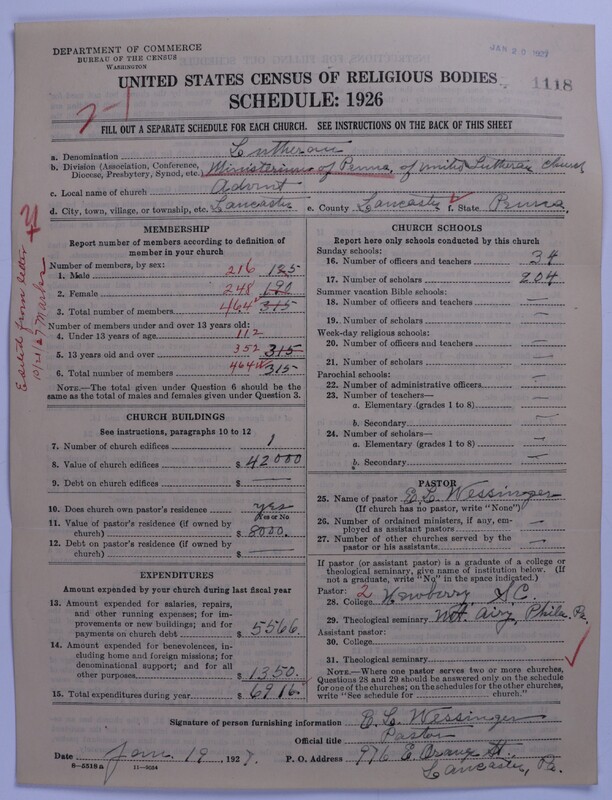 DEPARTMENT OF COMMERCE
BUREAU OF THE CENSUS
WASHINGTON
JAN 20 1927
UNITED STATES CENSUS OF RELIGIOUS BODIES
1118
SCHEDULE: 1926
7-1
FILL OUT A SEPARATE SCHEDULE FOR EACH CHURCH. SEE INSTRUCTIONS ON THE BACK OF THIS SHEET
a. Denomination Lutheran
b. Division (Association, Conference, Diocese, Presbytery, Synod, etc.) Ministerium of Penna. of United Lutheran Church
c. Local name of church Advent
d. City, town, village, or township, etc. Lancaster e. County Lancaster f. State Penna.
Edited from letter
MEMBERSHIP
Report number of members according to definition of member in your church
Number of members, by sex:
1. Male 216 125
2. Female 248 190
3. Total number of members 464 315
Number of members under and over 13 years old:
4. Under 13 years of age 112
5. 13 years old and over 352 315
6. Total number of members 464 315
NOTE.—The total given under Question 6 should be the same as the total of males and females given under Question 3.
CHURCH BUILDINGS
See instructions, paragraphs 10 to 12
7. Number of church edifices 1
8. Value of church edifices $ 42000
9. Debt on church edifices $ —
10. Does church own pastor's residence yes
Yes or No
11. Value of pastor's residence (if owned by church) $ 8000.
12. Debt on pastor's residence (if owned by church) $ —
EXPENDITURES
Amount expended by your church during last fiscal year
13. Amount expended for salaries, repairs, and other running expenses; for improvements or new buildings; and for payments on church debt $ 5566.
14. Amount expended for benevolences, including home and foreign missions; for denominational support; and for all other purposes $ 1350.
15. Total expenditures during year $ 6916.
CHURCH SCHOOLS
Report here only schools conducted by this church
Sunday schools:
16. Number of officers and teachers 34
17. Number of scholars 204
Summer vacation Bible schools:
18. Number of officers and teachers —
19. Number of scholars —
Week-day religious schools:
20. Number of officers and teachers —
21. Number of scholars —
Parochial schools:
22. Number of administrative officers —
23. Number of teachers—
a. Elementary (grades 1 to 8) —
b. Secondary —
24. Number of scholars—
a. Elementary (grades 1 to 8) —
b. Secondary —
PASTOR
25. Name of pastor E. L. Wessinger
(If church has no pastor, write "None")
26. Number of ordained ministers, if any, employed as assistant pastors —
27. Number of other churches served by the pastor or his assistants —
If pastor (or assistant pastor) is a graduate of a college or theological seminary, give name of institution below. (If not a graduate, write "No" in the space indicated.)
Pastor: 2
28. College Newberry S.C.
29. Theological seminary Mt. Airy, Phila. Pa.
Assistant pastor:
30. College
31. Theological seminary
NOTE.—Where one pastor serves two or more churches, Questions 28 and 29 should be answered only on the schedule for one of the churches; on the schedules for the other churches, write "See schedule for church."
Signature of person furnishing information E. L. Wessinger
Official title Pastor
Date Jan. 19 1927. P. O. Address 976 E. Orange St.
Lancaster, Pa.
8-5518 a 11-9034